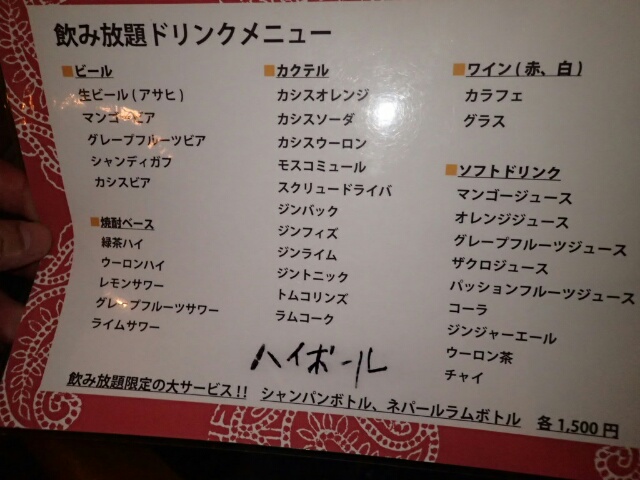 飲み放題ドリンクメニュー
■ビール
生ビール(アサヒ)
マンゴービア
グレープフルーツビア
シャンディガフ
カシスビア
■焼酎ベース
緑茶ハイ
ウーロンハイ
レモンサワー
グレープフルーツサワー
ライムサワー
■カクテル
カシスオレンジ
カシスソーダ
カシスウーロン
モスコミュール
スクリュードライバ
ジンバック
ジンフィズ
ジンライム
ジントニック
トムコリンズ
ラムコーク
ハイボール
■ワイン(赤、白)
カラフェ
グラス
■ソフトドリンク
マンゴージュース
オレンジジュース
グレープフルーツジュース
ザクロジュース
パッションフルーツジュース
コーラ
ジンジャーエール
ウーロン茶
チャイ
飲み放題限定の大サービス!! シャンパンボトル、ネパールラムボトル 各1,500円